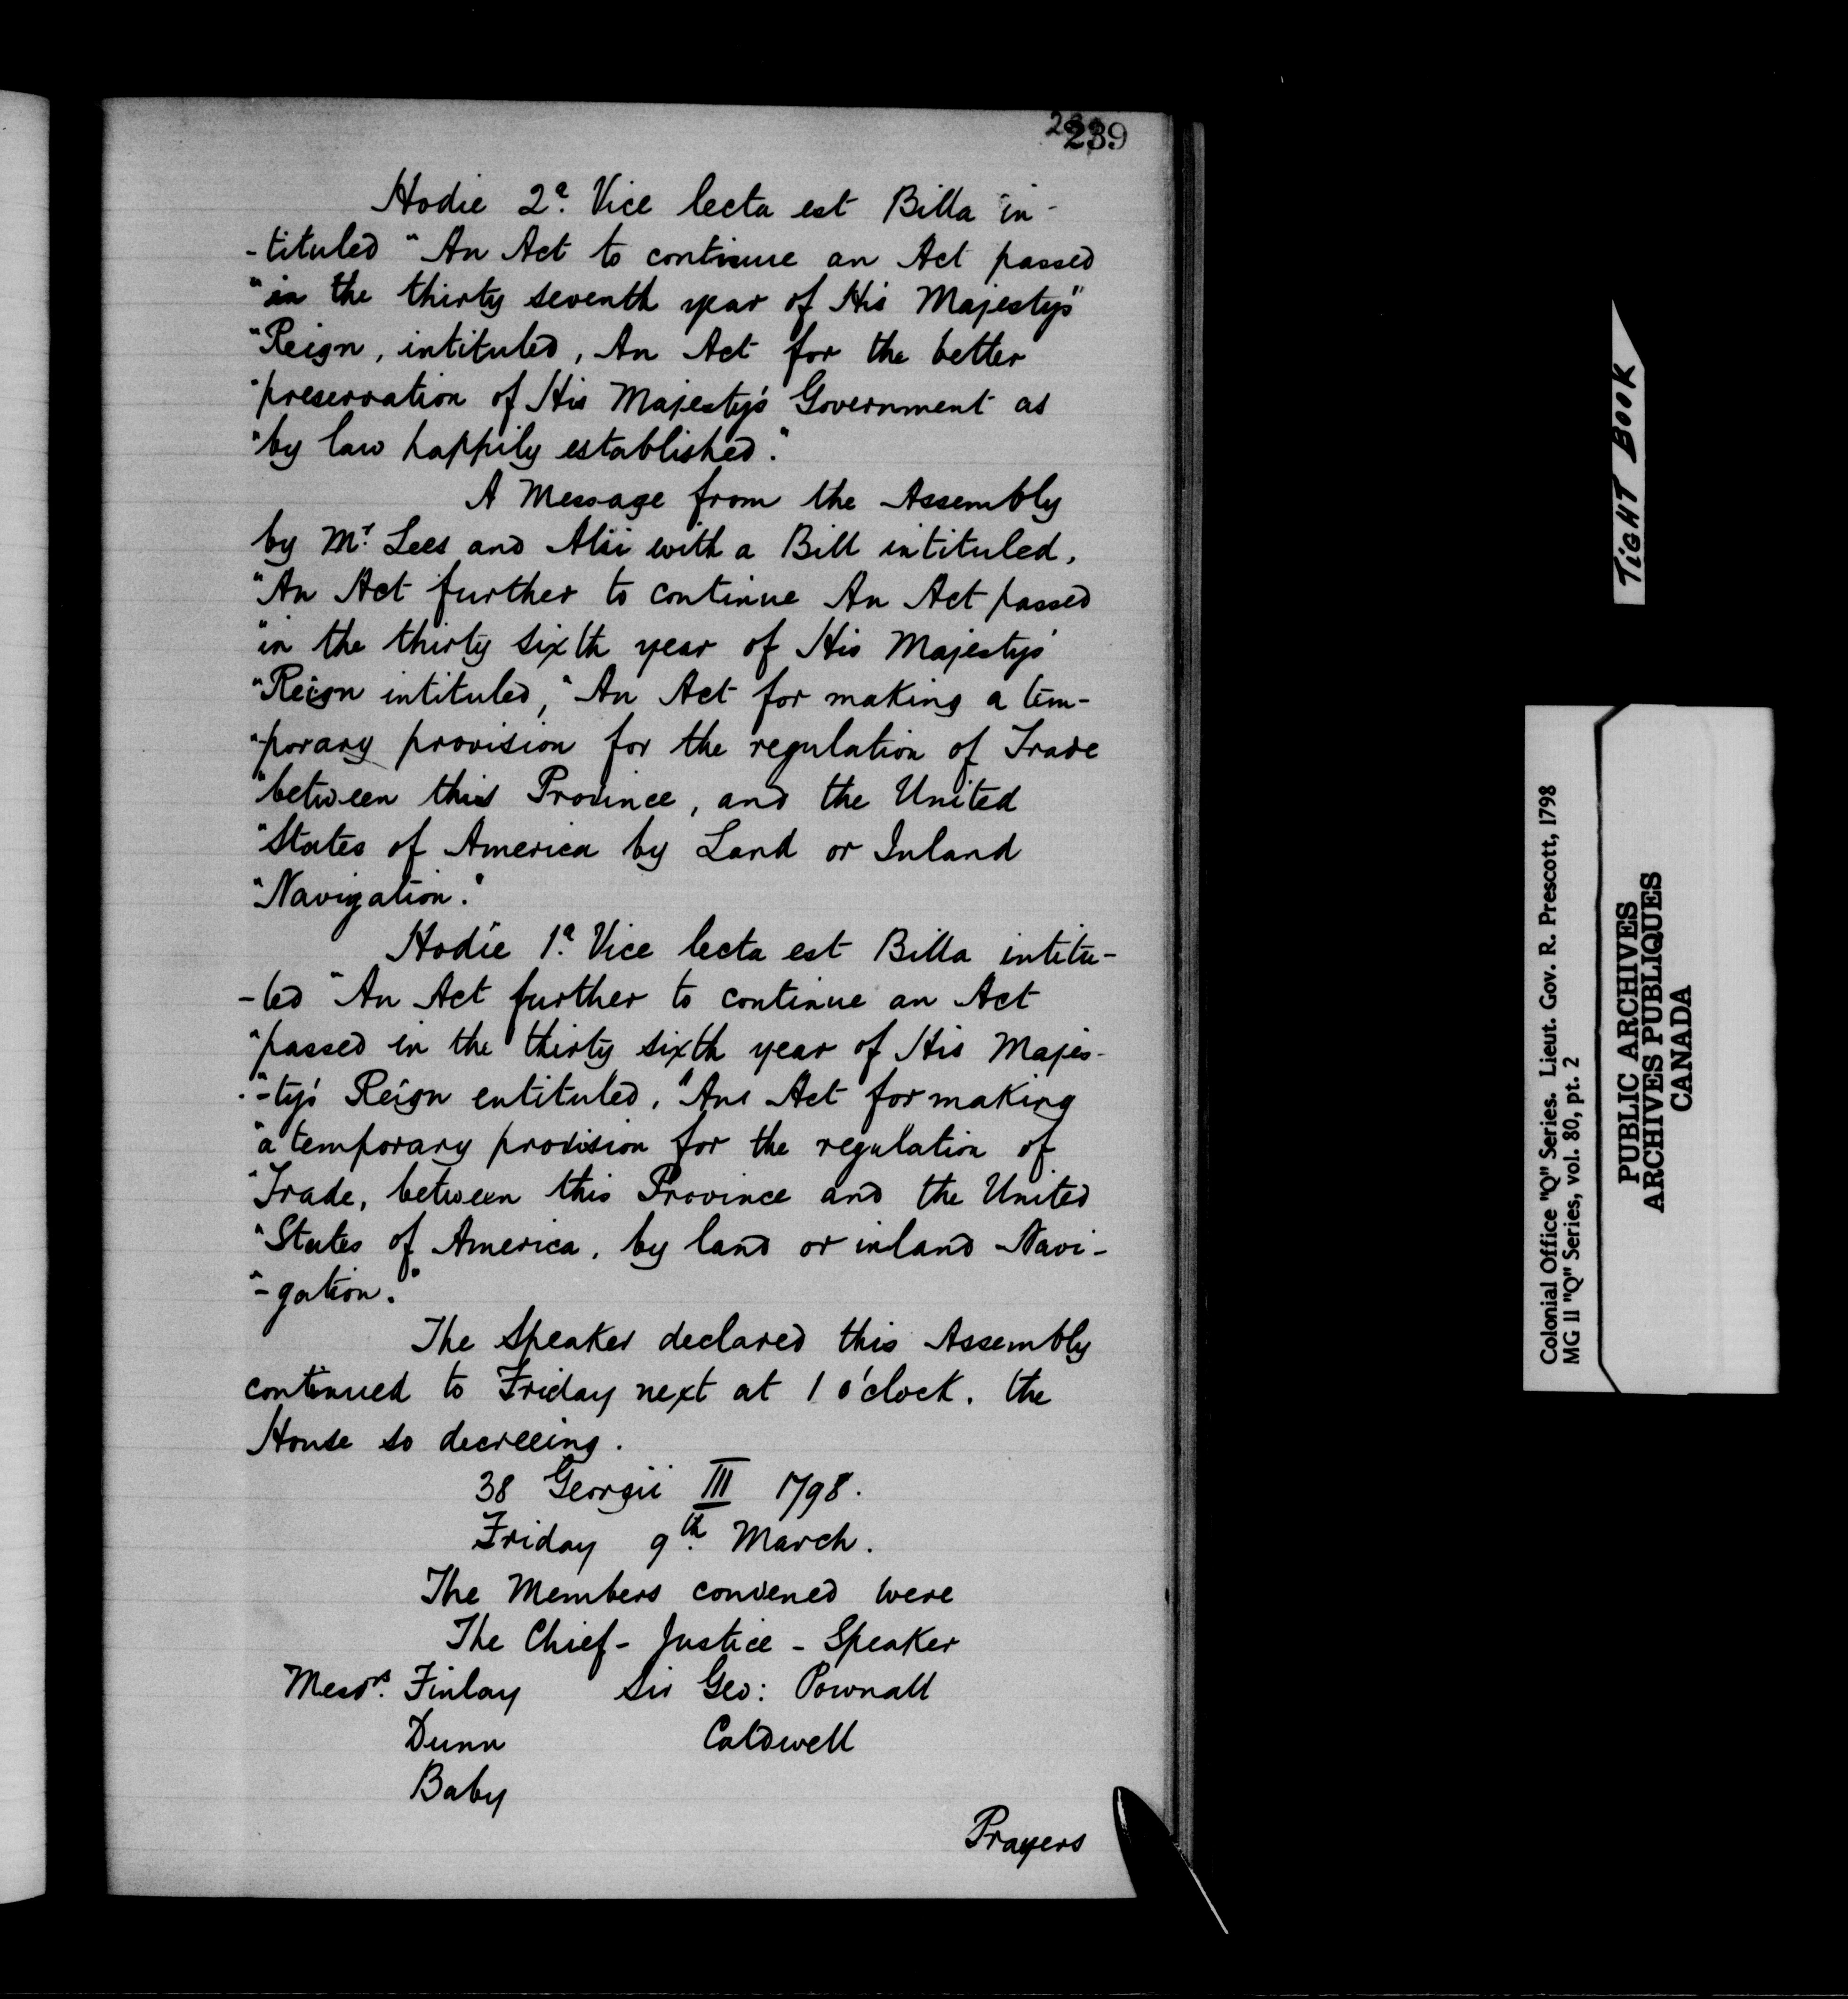 239
Hodie 2ª. Vice lecta est Billa in-
-tituled "An Act to continue an Act passed
"in the thirty seventh year of His Majesty's"
"Reign, intituled, An Act for the better
"preservation of His Majesty's Government as
"by law happily established."
A Message from the Assembly
by Mr. Lees and Alii with a Bill intituled,
"An Act further to continue An Act passed
"in the thirty sixth year of His Majesty's
"Reign intituled, "An Act for making a tem-
"porary provision for the regulation of Trade
"between this Province, and the United
"States of America by Land or Inland
"Navigation."
Hodie 1ª. Vice lecta est Billa intitu-
-led "An Act further to continue an Act
"passed in the thirty sixth year of His Majes-
"-ty's Reign entituled, "An Act for making
"a temporary provision for the regulation of
"Trade, between this Province and the United
"States of America, by land or inland Navi-
"-gation."
The Speaker declared this Assembly
continued to Friday next at 1 o'clock. the
House so decreeing.
38 Georgii III 1798.
Friday 9th. March.
The Members convened were
The Chief-Justice - Speaker
Messrs. Finlay Sir Geo: Pownall
Dunn Caldwell
Baby
Prayers
TIGHT BOOK
Colonial Office "Q" Series. Lieut. Gov. R. Prescott, 1798
MG 11 "Q" Series, vol. 80, pt. 2
PUBLIC ARCHIVES
ARCHIVES PUBLIQUES
CANADA